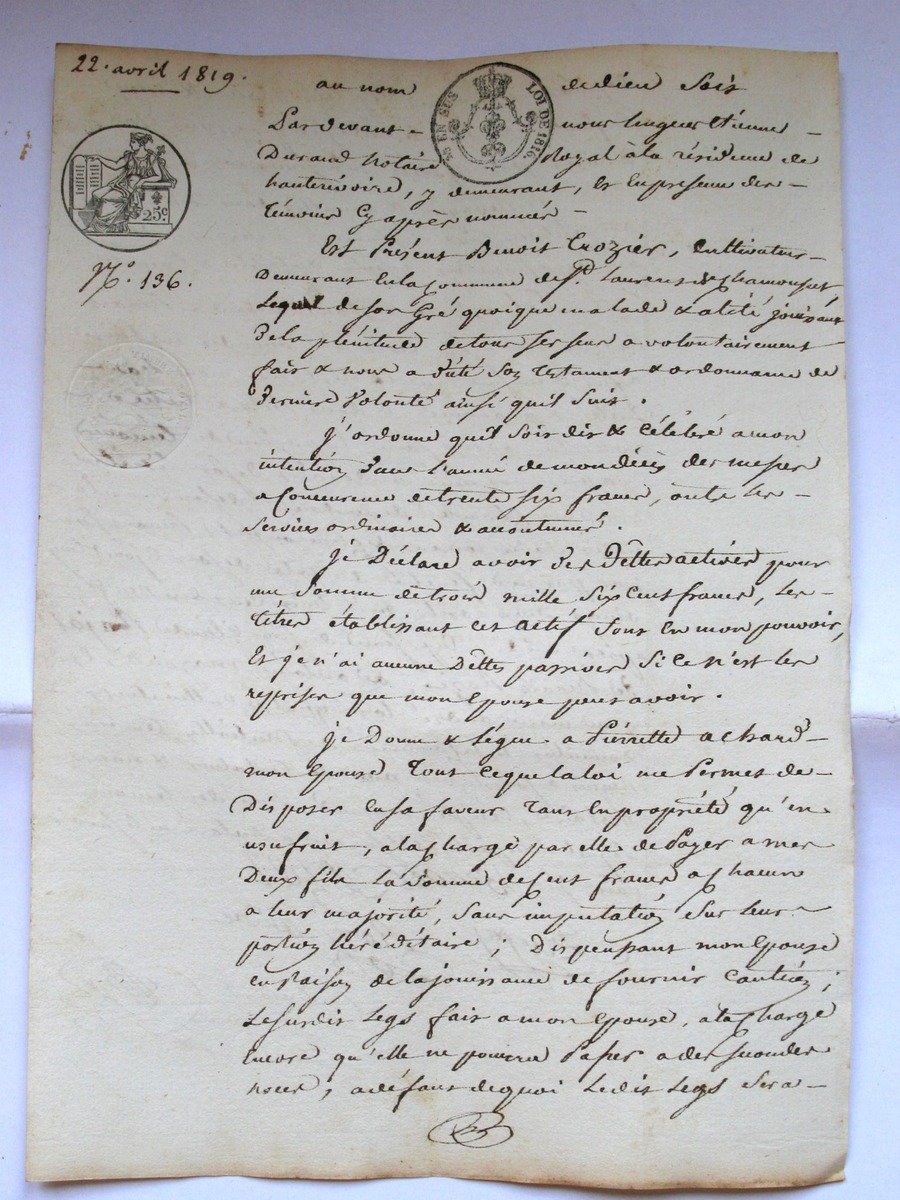 22. avril 1819.
au nom de dieu soit
EN SUS LOI DE 1816
Pardevant - nous hugues Etienne -
Durand Notaire Royal à la résidence de
hauterivoire, y demeurant, Et En presence des -
Témoins Cy après nommés -
25c
Est Présent Benoit Crozier, Cultivateur
N.º 136.
Demeurant En la Commune de St. Laurent de Chamousset
Lequel de son Gré quoique malade & alité jouissant
De la plénitude de tous ses sens a volontairement
fait & nous a Dicté son Testament & ordonnance de
Derniere Volonté ainsi qu'il suit.
J'ordonne qu'il soit dit & Célébré a mon
intention Dans l'année de mon décès des messes
a Concurrence de trente six francs, outre les -
Services ordinaires & accoutumés.
Je Déclare avoir Des Dettes actives pour
une Somme de trois mille six cent francs, les -
titres établissant cet actif sont En mon pouvoir,
Et je n'ai aucune Dettes passives si ce n'est les
reprises que mon Epouse peut avoir.
Je Donne & Légue a Pierrette achard -
mon Epouse Tout ce que la loi me Permet de -
Disposer En sa faveur Tant En propriété qu'en
usufruit, a la Charge par elle de Payer a mes
Deux fils la Somme de Cent francs a Chacun
à leur majorité, sans imputation sur leur
portion héréditaire ; Dispensant mon Epouse
en Raison de la jouissance de fournir Caution ;
Le susdit Legs fait a mon Epouse, a la Charge
Encore qu'elle ne pourra Passer a des secondes
noces, a défaut de quoi Ledit Legs sera -